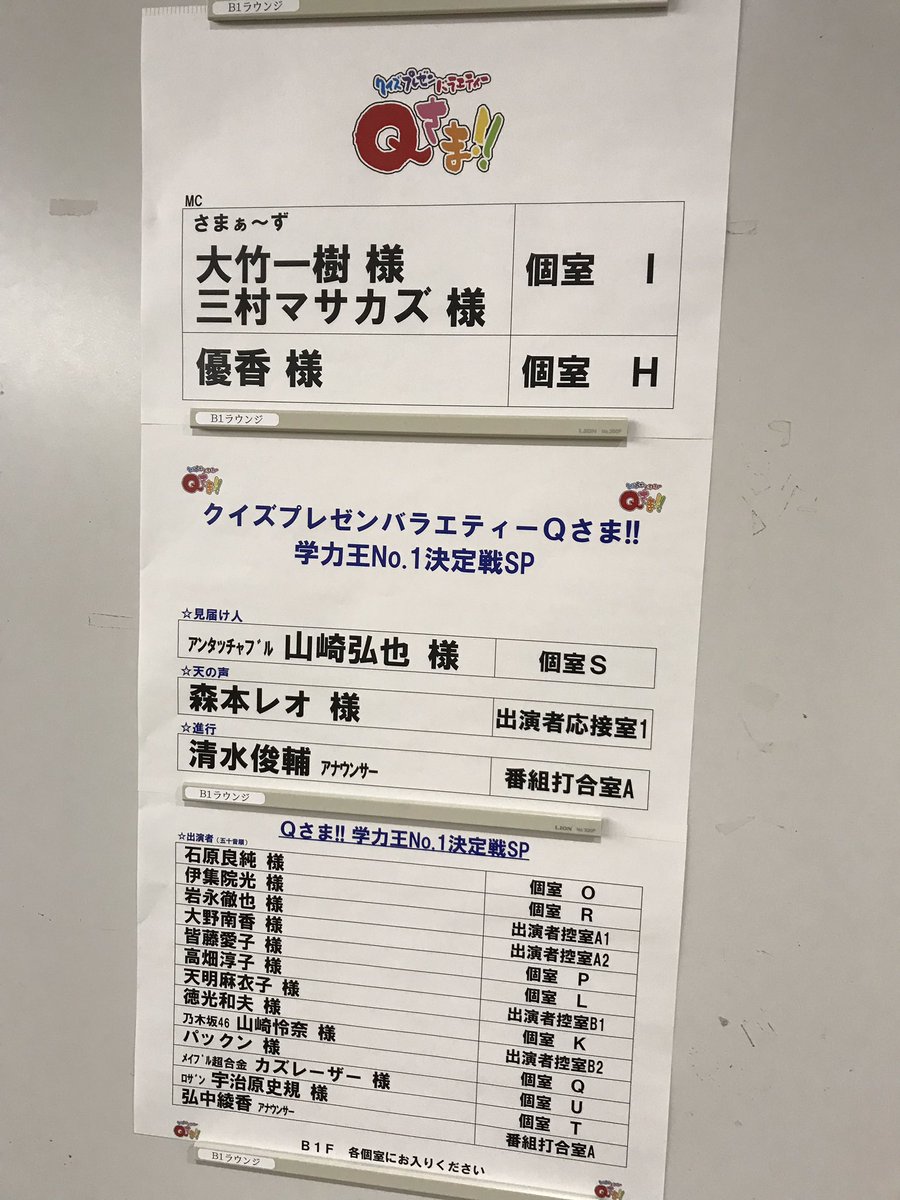 B1ラウンジ
クイズプレゼンバラエティー
Qさま!!
MC
さまぁ～ず
大竹一樹 様
三村マサカズ 様
個室 I
優香 様
個室 H
B1ラウンジ
LION No.300F
クイズプレゼンバラエティー
Qさま!!
クイズプレゼンバラエティー
Qさま!!
クイズプレゼンバラエティーQさま!!
学力王No.1決定戦SP
☆見届け人
アンタッチャブル 山崎弘也 様 個室S
☆天の声
森本レオ 様 出演者応接室1
☆進行
清水俊輔 アナウンサー 番組打合室A
B1ラウンジ
LION No.300F
Qさま!! 学力王No.1決定戦SP
☆出演者(五十音順)
石原良純 様 個室 O
伊集院光 様 個室 R
岩永徹也 様 出演者控室A1
大野南香 様 出演者控室A2
皆藤愛子 様 個室 P
高畑淳子 様 個室 L
天明麻衣子 様 出演者控室B1
徳光和夫 様 個室 K
乃木坂46 山崎怜奈 様 出演者控室B2
パックン 様 個室 Q
メイプル超合金 カズレーザー 様 個室 U
ロザン 宇治原史規 様 個室 T
弘中綾香 アナウンサー 番組打合室A
Qさま!!
B1F 各個室にお入りください
Qさま!!
B1ラウンジ